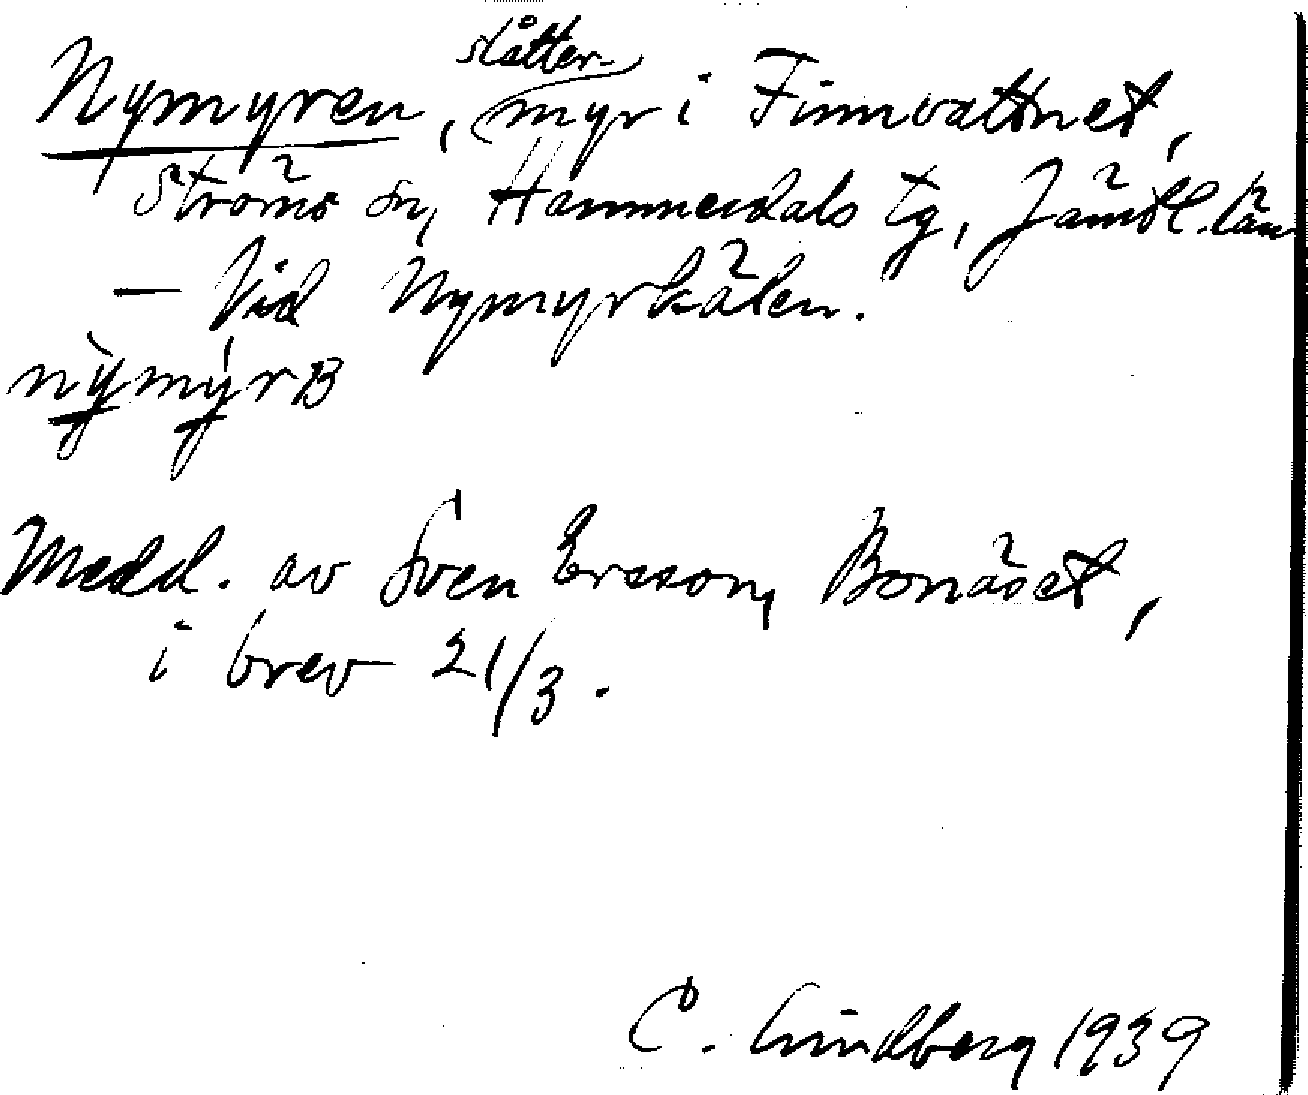 Nymyren, slåttermyr i Finnvattnet,
Ströms sn, Hammerdals tg, Jämtl. län
— Vid Nymyrkälen.
nỳmýrʙ
Medd. av Sven Ersson, Bonäset,
i brev 21/3.
C. Lindberg 1939